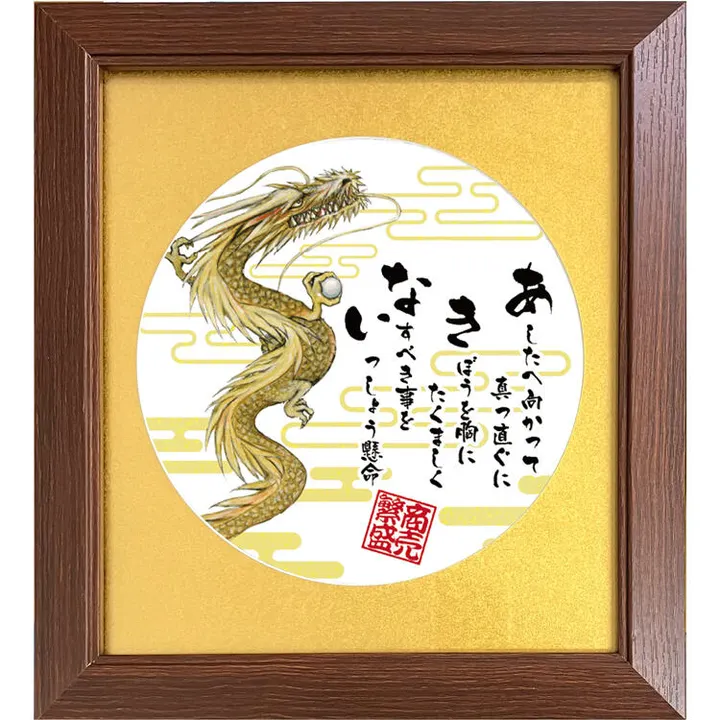 あしたへ向かって
真っ直ぐに
きぼうを胸に
たくましく
なすべき事を
いっしょう懸命
商売
繁盛